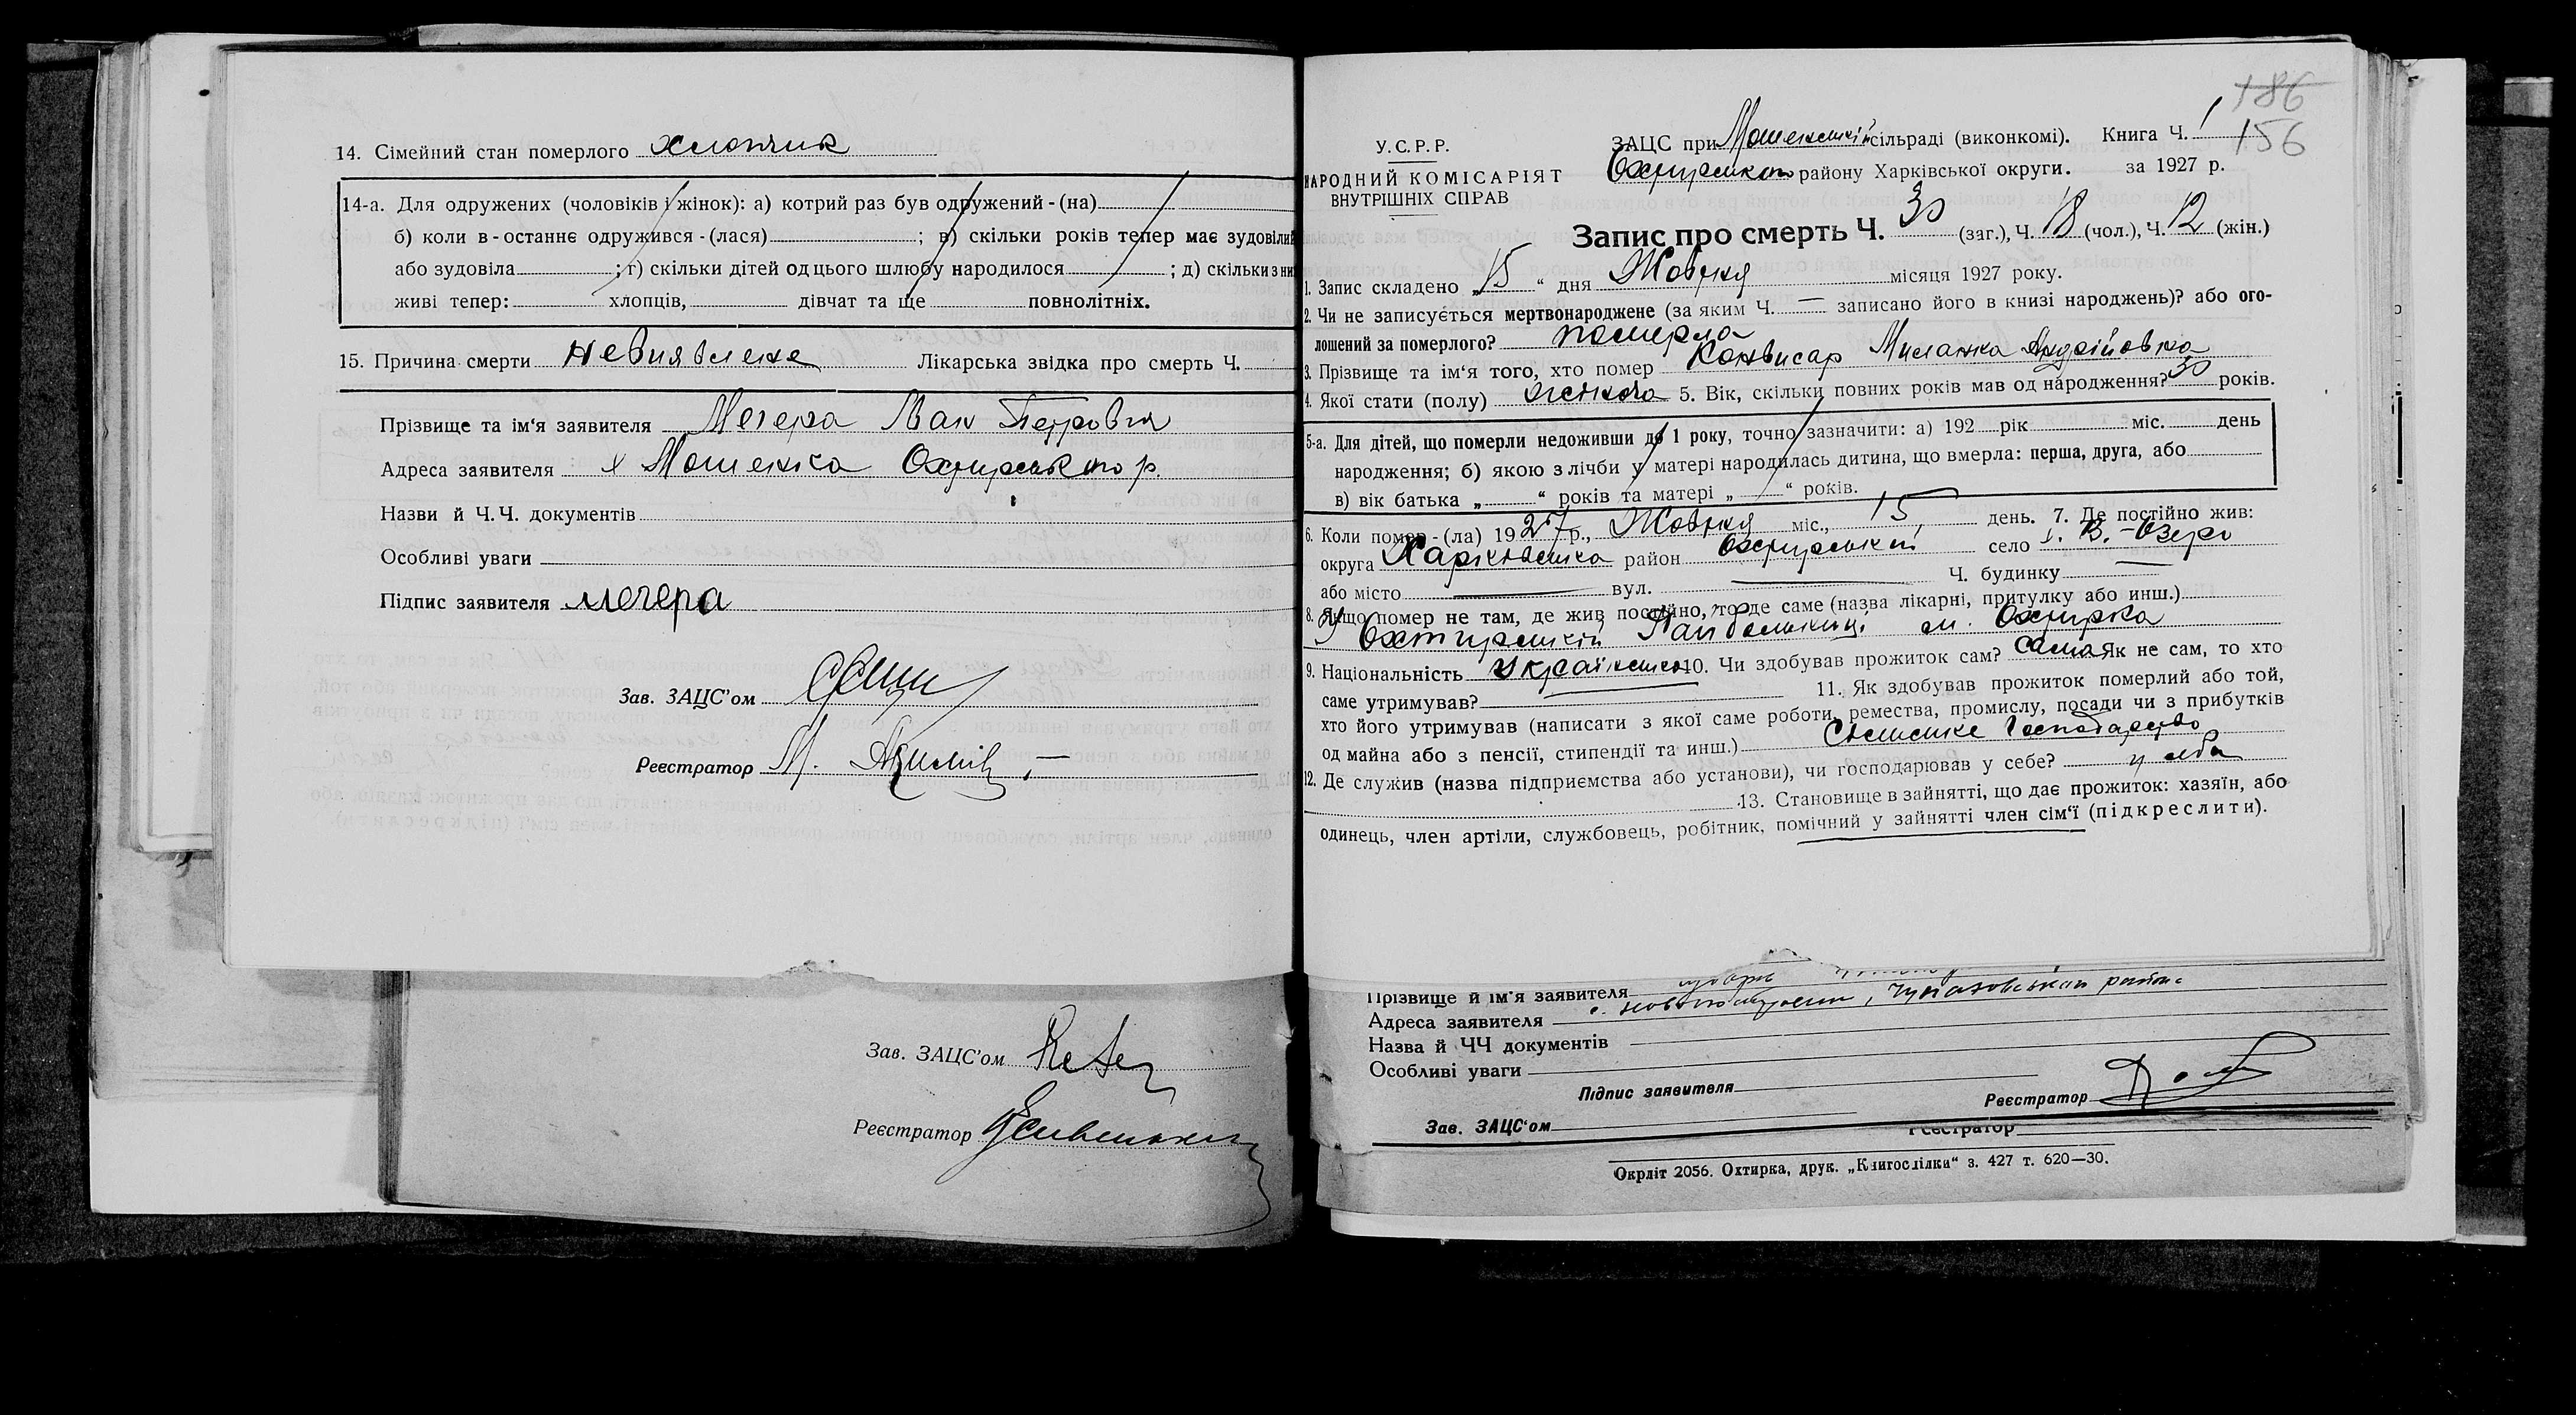 14. Сімейний стан померлого хлопчик
14-а. Для одружених (чоловіків і жінок): а) котрий раз був одружений - (на)
б) коли в-останнє одружився - (лася) ; в) скільки років тепер має зудовілий
або зудовіла ; г) скільки дітей од цього шлюбу народилося ; д) скільки з них
живі тепер: хлопців, дівчат та ще повнолітніх.
15. Причина смерти невиявлена Лікарська звідка про смерть Ч.
Прізвище та ім'я заявителя Мегера Іван Петрович
Адреса заявителя х Мошенка Охтирського р.
Назви й Ч.Ч. документів
Особливі уваги
Підпис заявителя Мегера
Зав. ЗАЦС'ом
Реєстратор М.
Зав. ЗАЦС'ом
Реєстратор
186
156
У.С.Р.Р.
НАРОДНИЙ КОМІСАРІЯТ
ВНУТРІШНІХ СПРАВ
ЗАЦС при Мошенській сільраді (виконкомі). Книга Ч. 1
Охтирского району Харківської округи. за 1927 р.
Запис про смерть Ч. 30 (заг.), Ч. 18 (чол.), Ч. 12 (жін.)
1. Запис складено „15“ дня Жовтня місяця 1927 року.
2. Чи не записується мертвонароджене (за яким Ч. — записано його в книзі народжень)? або ого-
лошений за померлого? померла
3. Прізвище та ім'я того, хто помер Конвисар Миланка Андрійовна
4. Якої стати (полу) жіноча 5. Вік, скільки повних років мав од народження? 30 років.
5-а. Для дітей, що померли недоживши до 1 року, точно зазначити: а) 192 рік міс. день
народження; б) якою з лічби у матері народилась дитина, що вмерла: перша, друга, або
в) вік батька „ “ років та матері „ “ років.
6. Коли помер - (ла) 1927 р., Жовтня міс., 15 день. 7. Де постійно жив:
округа Харківська район Охтирський село В.-Озеро
або місто — вул. — Ч. будинку —
8. Якщо помер не там, де жив постійно, то де саме (назва лікарні, притулку або инш.)
У Охтирській Райбольниці м. Охтирка
9. Національність українська 10. Чи здобував прожиток сам? сама Як не сам, то хто
саме утримував? 11. Як здобував прожиток померлий або той,
хто його утримував (написати з якої саме роботи, ремества, промислу, посади чи з прибутків
од майна або з пенсії, стипендії та инш.) Сільське Господарство
12. Де служив (назва підприємства або установи), чи господарював у себе? у себе
13. Становище в зайнятті, що дає прожиток: хазяїн, або
одинець, член артіли, службовець, робітник, помічний у зайнятті член сім'ї (підкреслити).
Прізвище й ім'я заявителя
Адреса заявителя
Назва й ЧЧ документів
Особливі уваги
Підпис заявителя
Реєстратор
Зав. ЗАЦС'ом
Реєстратор
Окрліт 2056. Охтирка, друк. „Книгоспілки“ з. 427 т. 620—30.